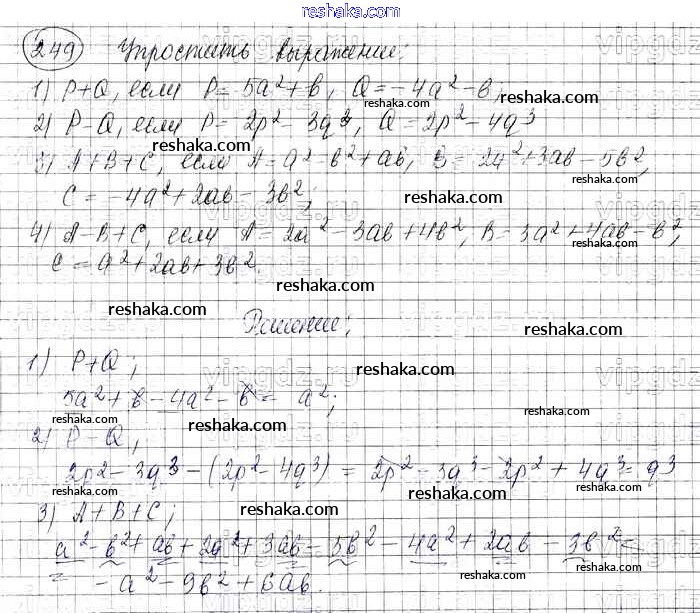 reshaka.com
249) Упростить выражение:
1) P+Q, если P=5a²+b, Q=-4a²-b;
reshaka.com
2) P-Q, если P=2p²-3q³, Q=2p²-4q³
reshaka.com
3) A+B+C, если A=a²-b²+ab, B=2a²+3ab-5b²,
reshaka.com
C=-4a²+2ab-3b²;
reshaka.com
4) A-B+C, если A=2a²-3ab+4b², B=3a²+4ab-b²,
reshaka.com reshaka.com
C=a²+2ab+3b².
reshaka.com
Решение:
reshaka.com
1) P+Q;
reshaka.com
5a²+b-4a²-b=a²;
reshaka.com reshaka.com
2) P-Q;
reshaka.com
2p²-3q³-(2p²-4q³)=2p²-3q³-2p²+4q³=q³
reshaka.com reshaka.com
3) A+B+C;
reshaka.com
a²-b²+ab+2a²+3ab=5b²-4a²+2ab-3b²=
reshaka.com reshaka.com
-a²-9b²+6ab.
reshaka.com